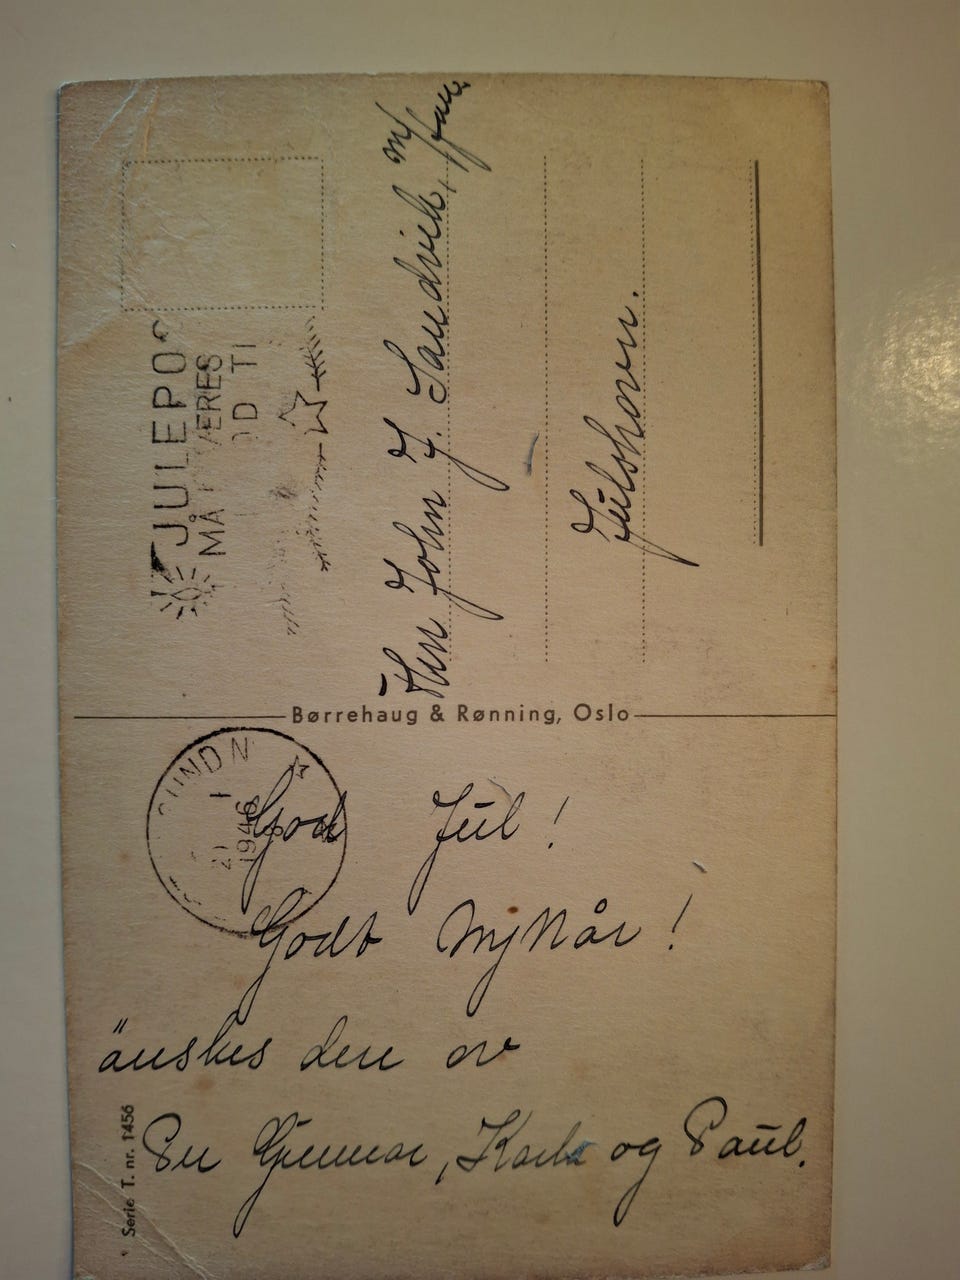 JULEPO
MÅ ERES
OD TI
Herr John J. Sandvik, m/fam.
Julshavn.
Børrehaug & Rønning, Oslo
SUND N
21
1946
God Jul!
Godt NyNår!
önskes dere av
Per Gunnar, Karla og Paul.
Serie T. nr. 1456